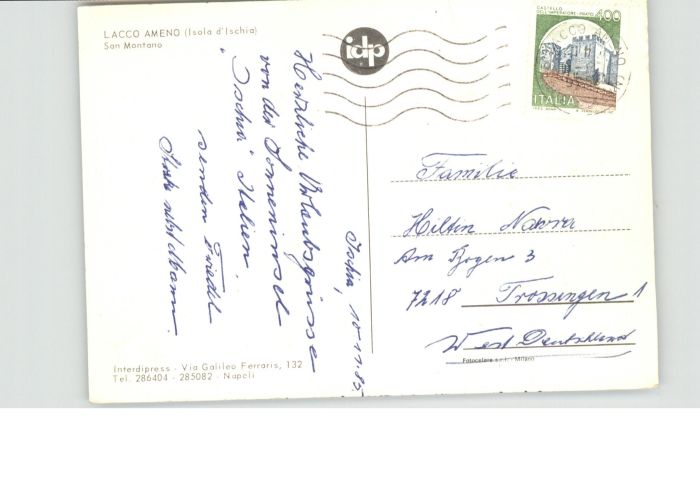 LACCO AMENO (Isola d'Ischia)
San Montano
idp
CASTELLO
DELL'IMPERATORE - PRATO
400
ITALIA
Ischia, 10.11.85
Herzliche Urlaubsgrüsse
von der Sonneninsel
"Ischia" Italien.
senden Friedel
Familie
Am Bogen 3
7218 Trossingen 1
West Deutschland
Interdipress - Via Galileo Ferraris, 132
Tel. 286404 - 285082 - Napoli
Fotocelere s.r.l. - Milano